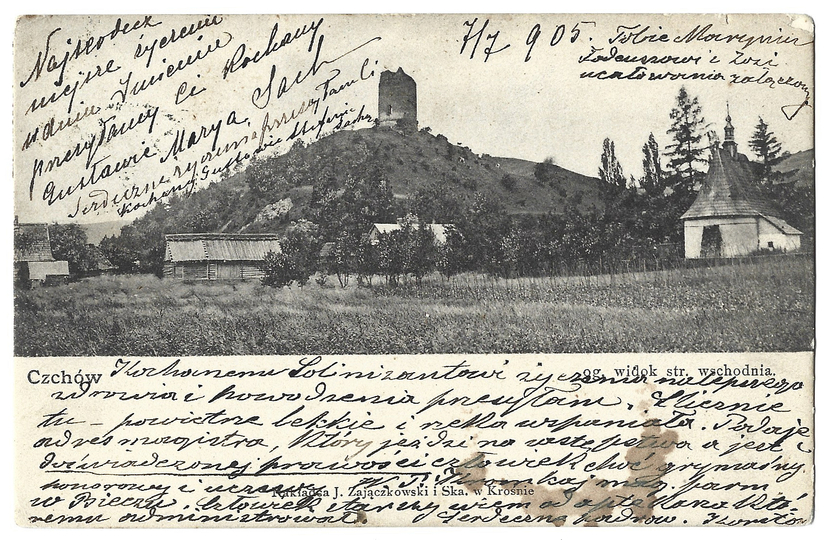 Najserdecz
niejsze życzenia
w dniu Imienia
przesyłamy Ci Kochany
Gustawie Marya Sach
Serdeczne życzenia przesyłam Ci
Kochany Gustawie Stefania
Sachs
7/7 905. Tobie Maryniu
Tadeuszowi i Zosi
ucałowania załączam
Czchów
og. widok str. wschodnia.
Kochanemu Solinizantowi życzenia najlepszego
zdrowia i powodzenia przesyłam. Ślicznie
tu – powietrze lekkie i rzeka wspaniała. Podaję
adres magistra, który jeździ na zastępstwa a jest
doświadczonej prawości człowiek choć grymaśny
honorowy i uczciwy. W. P. mag. farm.
w Bieczu. Człowiek starszy wiem od aptekarza któ-
remu administrował. Serdecznie pozdrow.
Nakładca J. Zajączkowski i Ska. w Krośnie